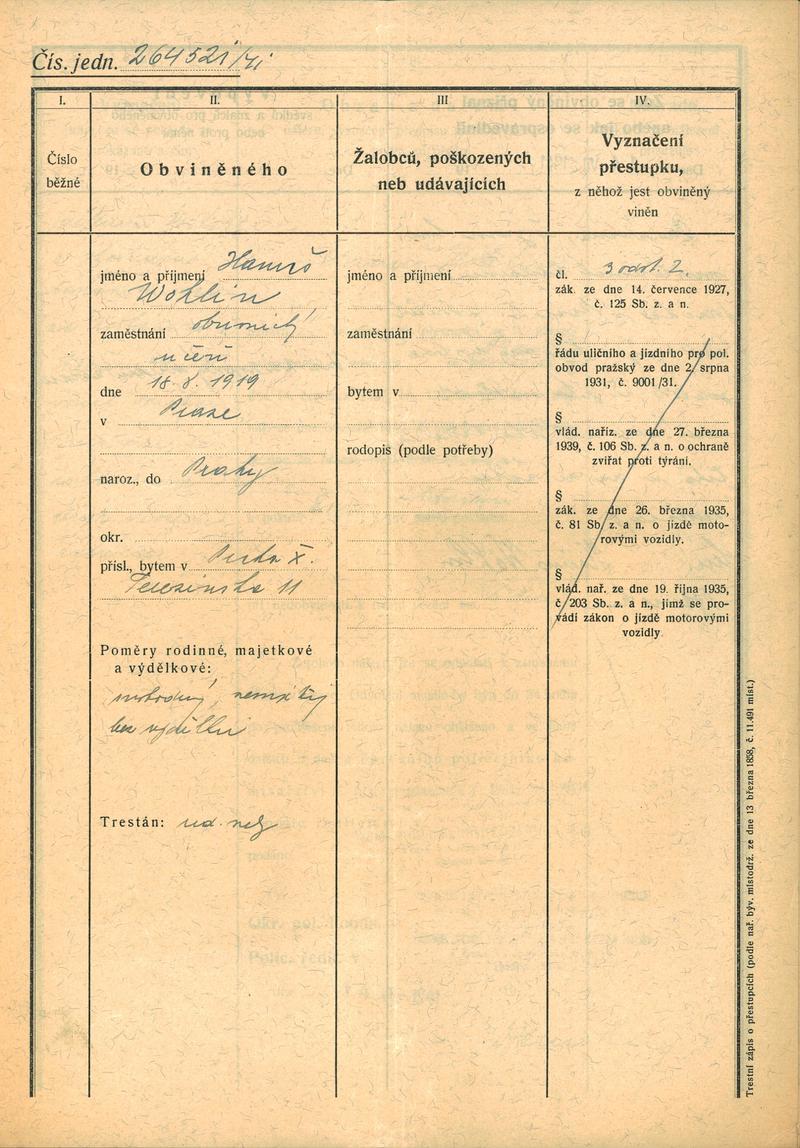 Čís. jedn. 264521/41
I.
Číslo
běžné
II.
Obviněného
III
Žalobců, poškozených
neb udávajících
IV.
Vyznačení
přestupku,
z něhož jest obviněný
viněn
jméno a příjmení Hanuš
Wohlin
zaměstnání obuvnický
učeň
dne 18.X.1919
v Praze
naroz., do Prahy
okr.
přísl., bytem v Praha X.
Terezínská 11
Poměry rodinné, majetkové
a výdělkové:
svobodný, nemajetný
bez výdělku
Trestán:
jméno a příjmení
zaměstnání
bytem v
rodopis (podle potřeby)
čl. 3 odst. 2.
zák. ze dne 14. července 1927,
č. 125 Sb. z. a n.
§
řádu uličního a jízdního pro pol.
obvod pražský ze dne 2. srpna
1931, č. 9001/31.
§
vlád. naříz. ze dne 27. března
1939, č. 106 Sb. z. a n. o ochraně
zvířat proti týrání.
§
zák. ze dne 26. března 1935,
č. 81 Sb. z. a n. o jízdě moto-
rovými vozidly.
§
vlád. nař. ze dne 19. října 1935,
č. 203 Sb. z. a n., jímž se pro-
vádí zákon o jízdě motorovými
vozidly.
Trestní zápis o přestupcích (podle nař. býv. místodrž. ze dne 13 března 1858, č. 11.491 míst.)